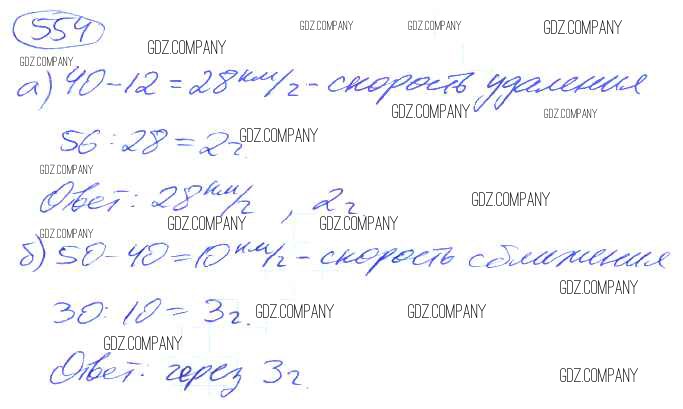 554
GDZ.COMPANY GDZ.COMPANY GDZ.COMPANY
GDZ.COMPANY
GDZ.COMPANY
а) 40-12=28 км/ч - скорость удаления
GDZ.COMPANY GDZ.COMPANY
56:28=2ч.
GDZ.COMPANY
GDZ.COMPANY
Ответ: 28 км/ч, 2ч
GDZ.COMPANY
GDZ.COMPANY GDZ.COMPANY
GDZ.COMPANY
б) 50-40=10 км/ч - скорость сближения
GDZ.COMPANY
30:10=3ч.
GDZ.COMPANY GDZ.COMPANY
GDZ.COMPANY
Ответ: через 3ч.
GDZ.COMPANY